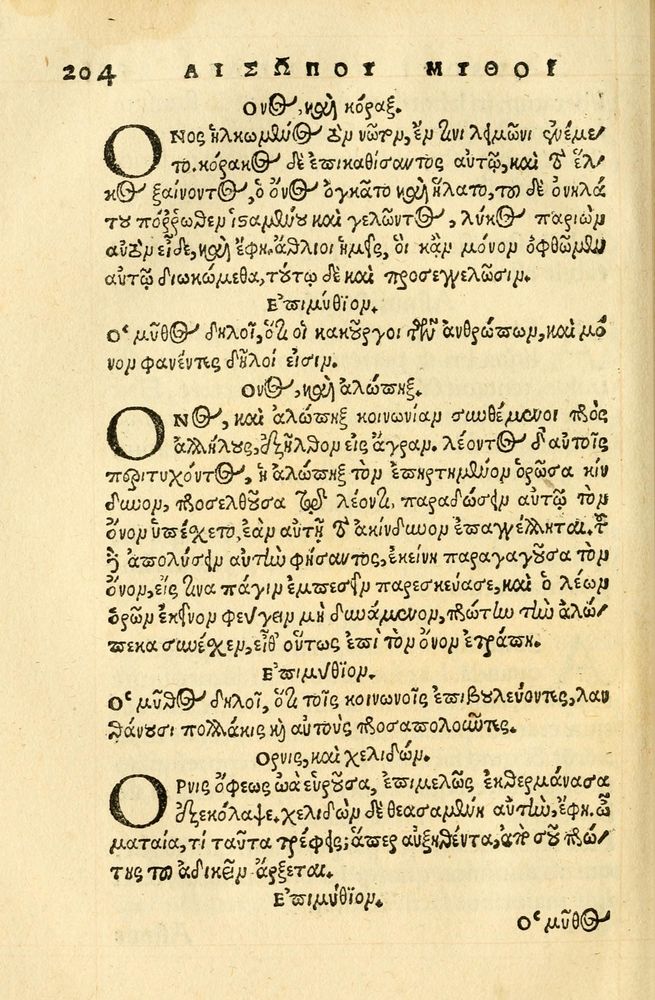 204 ΑΙΣΩΠΟΥ ΜΥΘΟΙ
Ονος, καὶ κόραξ.
ΟΝος ἡλκωμένος τὸν νῶτον, ἔν τινι λειμῶνι ἐνέμε/
το. κόρακος δὲ ἐπικαθίσαντος αὐτῷ, καὶ τὸ ἕλ/
κος ξαίνοντος, ὁ ὄνος ὀγκᾶτο καὶ ἥλατο, τοῦ δὲ ὀνηλά
του πόῤῥωθεν ἱσαμένου καὶ γελῶντος, λύκος παριὼν
αὐτὸν εἶδε, καὶ ἔφη. ἄθλιοι ἡμεῖς, οἳ κἂν μόνον ὀφθῶμεν
αὐτῷ διωκόμεθα, τούτῳ δὲ καὶ προσεγγελῶσιν.
Επιμύθιον.
Ο μῦθος δηλοῖ, ὅτι οἱ κακοῦργοι τῶν ἀνθρώπων, καὶ μό/
νον φανέντες δῆλοί εἰσιν.
Ονος, καὶ ἀλώπηξ.
ΟΝος, καὶ ἀλώπηξ κοινωνίαν συνθέμενοι πρὸς
ἀλλήλους, ἐξῆλθον εἰς ἄγραν. λέοντος δ' αὐτοῖς
περιτυχόντος, ἡ ἀλώπηξ τὸν ἐπηρτημένον ὁρῶσα κίν
δυνον, προσελθοῦσα τῷ λέοντι, παραδώσειν αὐτῷ τὸν
ὄνον ὑπέχετο, ἐὰν αὐτῇ τὸ ἀκίνδυνον ἐπαγγέλληται. τοῦ
δὲ ἀπολύσειν αὐτὴν φήσαντος, ἐκείνη παραγαγοῦσα τὸν
ὄνον, εἴς τινα πάγην ἐμπεσεῖν παρεσκεύασε, καὶ ὁ λέων
ὁρῶν ἐκεῖνον φεύγειν μὴ δυνάμενον, πρώτην τὴν ἀλώ/
πεκα συνέχεν, εἶθ' οὕτως ἐπὶ τὸν ὄνον ἐτράπη.
Επιμύθιον.
Ο μῦθος δηλοῖ, ὅτι τοῖς κοινωνοῖς ἐπιβουλεύοντες, λαν
θάνουσι πολλάκις καὶ αὐτοὺς προσαπολοῦντες.
Ορνις, καὶ χελιδών.
ΟΡνις ὄφεως ὠὰ εὑροῦσα, ἐπιμελῶς ἐκθερμάνασα
ἐξεκόλαψε. χελιδὼν δὲ θεασαμένη αὐτὴν, ἔφη. ὦ
ματαία, τί ταῦτα τρέφεις; ἅπερ αὐξηθέντα, ἀπὸ σοῦ πρώ/
της τοῦ ἀδικεῖν ἄρξεται.
Επιμύθιον.
Ο μῦθος